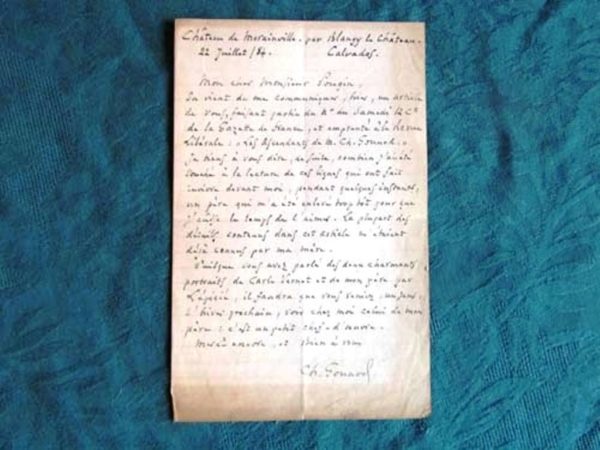 Château de Merainville. par Blangy le Château.
22 Juillet /84. Calvados.
Mon cher Monsieur Pougin,
On vient de me communiquer, ici, un article
de vous, faisant partie du N° du Samedi 12 Ct
de la Gazette de France, et emprunté à la Revue
Libérale: "Les Descendants de M. Ch. Gounod."
Je tiens à vous dire, de suite, combien j'ai été
touché à la lecture de ces lignes qui ont fait
revivre devant moi, pendant quelques instants,
un père qui m'a été enlevé trop tôt pour que
j'aie eu le temps de l'aimer. La plupart des
détails contenus dans cet article m'étaient
déjà connus par ma mère.
Puisque vous avez parlé des deux charmants
portraits de Carle Vernet et de mon père par
il faudra que vous veniez, un jour,
l'hiver prochain, voir chez moi celui de mon
père: c'est un petit chef-d'œuvre.
Merci encore, et bien à vous
Ch. Gounod